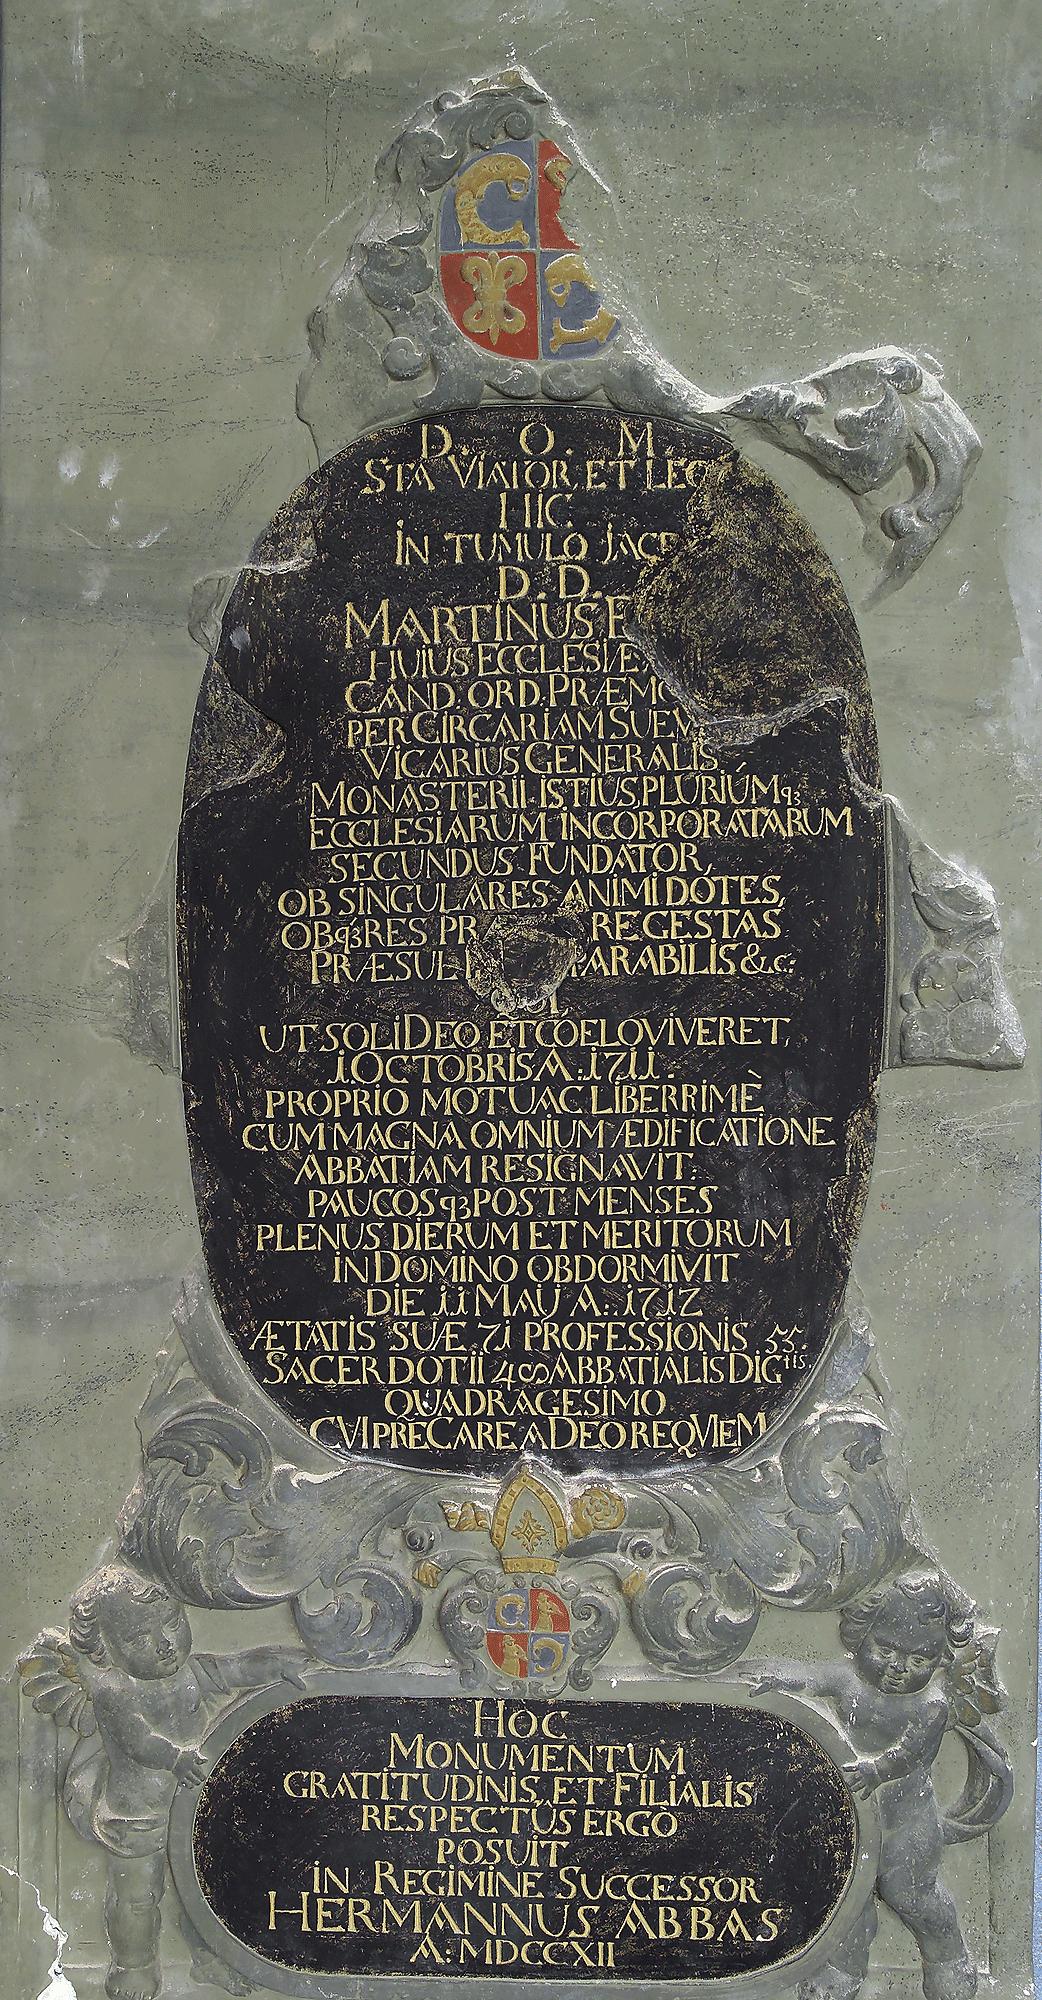 D. O. M
STA VIATOR ET LEG
HIC
IN TUMULO JACE
D. D.
MARTINUS
HUIUS ECCLESIÆ
CAND. ORD. PRÆMO
PER CIRCARIAM SUEV
VICARIUS GENERALIS
MONASTERII ISTIUS, PLURIÚMqꝫ
ECCLESIARUM INCORPORATARUM
SECUNDUS FUNDATOR,
OB SINGULARES ANIMI DOTES,
OBqꝫ RES PR RE GESTAS
PRÆSUL PARABILIS &c:
UT SOLI DEO ET COELO VIVERET,
1. OCTOBRIS A: 1711.
PROPRIO MOTU AC LIBERRIMÈ
CUM MAGNA OMNIUM ÆDIFICATIONE
ABBATIAM RESIGNAVIT:
PAUCOS qꝫ POST MENSES
PLENUS DIERUM ET MERITORUM
IN DOMINO OBDORMIVIT
DIE 11 MAIJ A: 1712
ÆTATIS SUÆ 71 PROFESSIONIS 55.
SACERDOTII 48 ABBATIALIS DIGtis.
QUADRAGESIMO
CVI PRECARE A DEO REQVIEM
HOC
MONUMENTUM
GRATITUDINIS, ET FILIALIS
RESPECTUS ERGO
POSUIT
IN REGIMINE SUCCESSOR
HERMANNUS ABBAS
A: MDCCXII